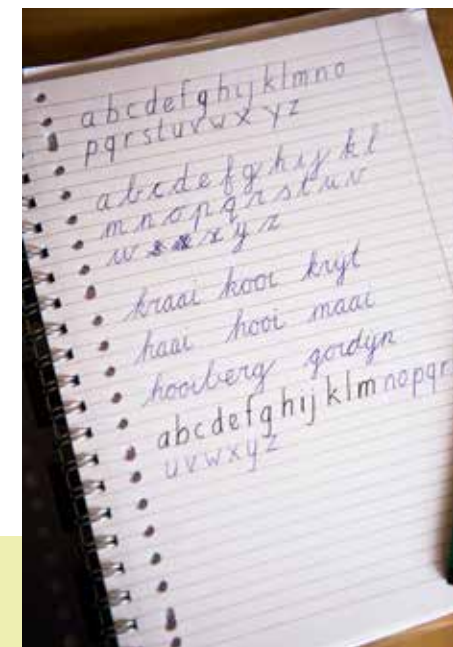 abcdefghijklmno
pqrstuvwxyz
abcdefghijkl
mnopqrstuv
wxyz
kraai kooi krijt
haai hooi maai
hooiberg gordijn
abcdefghijklmnopqr
uvwxyz